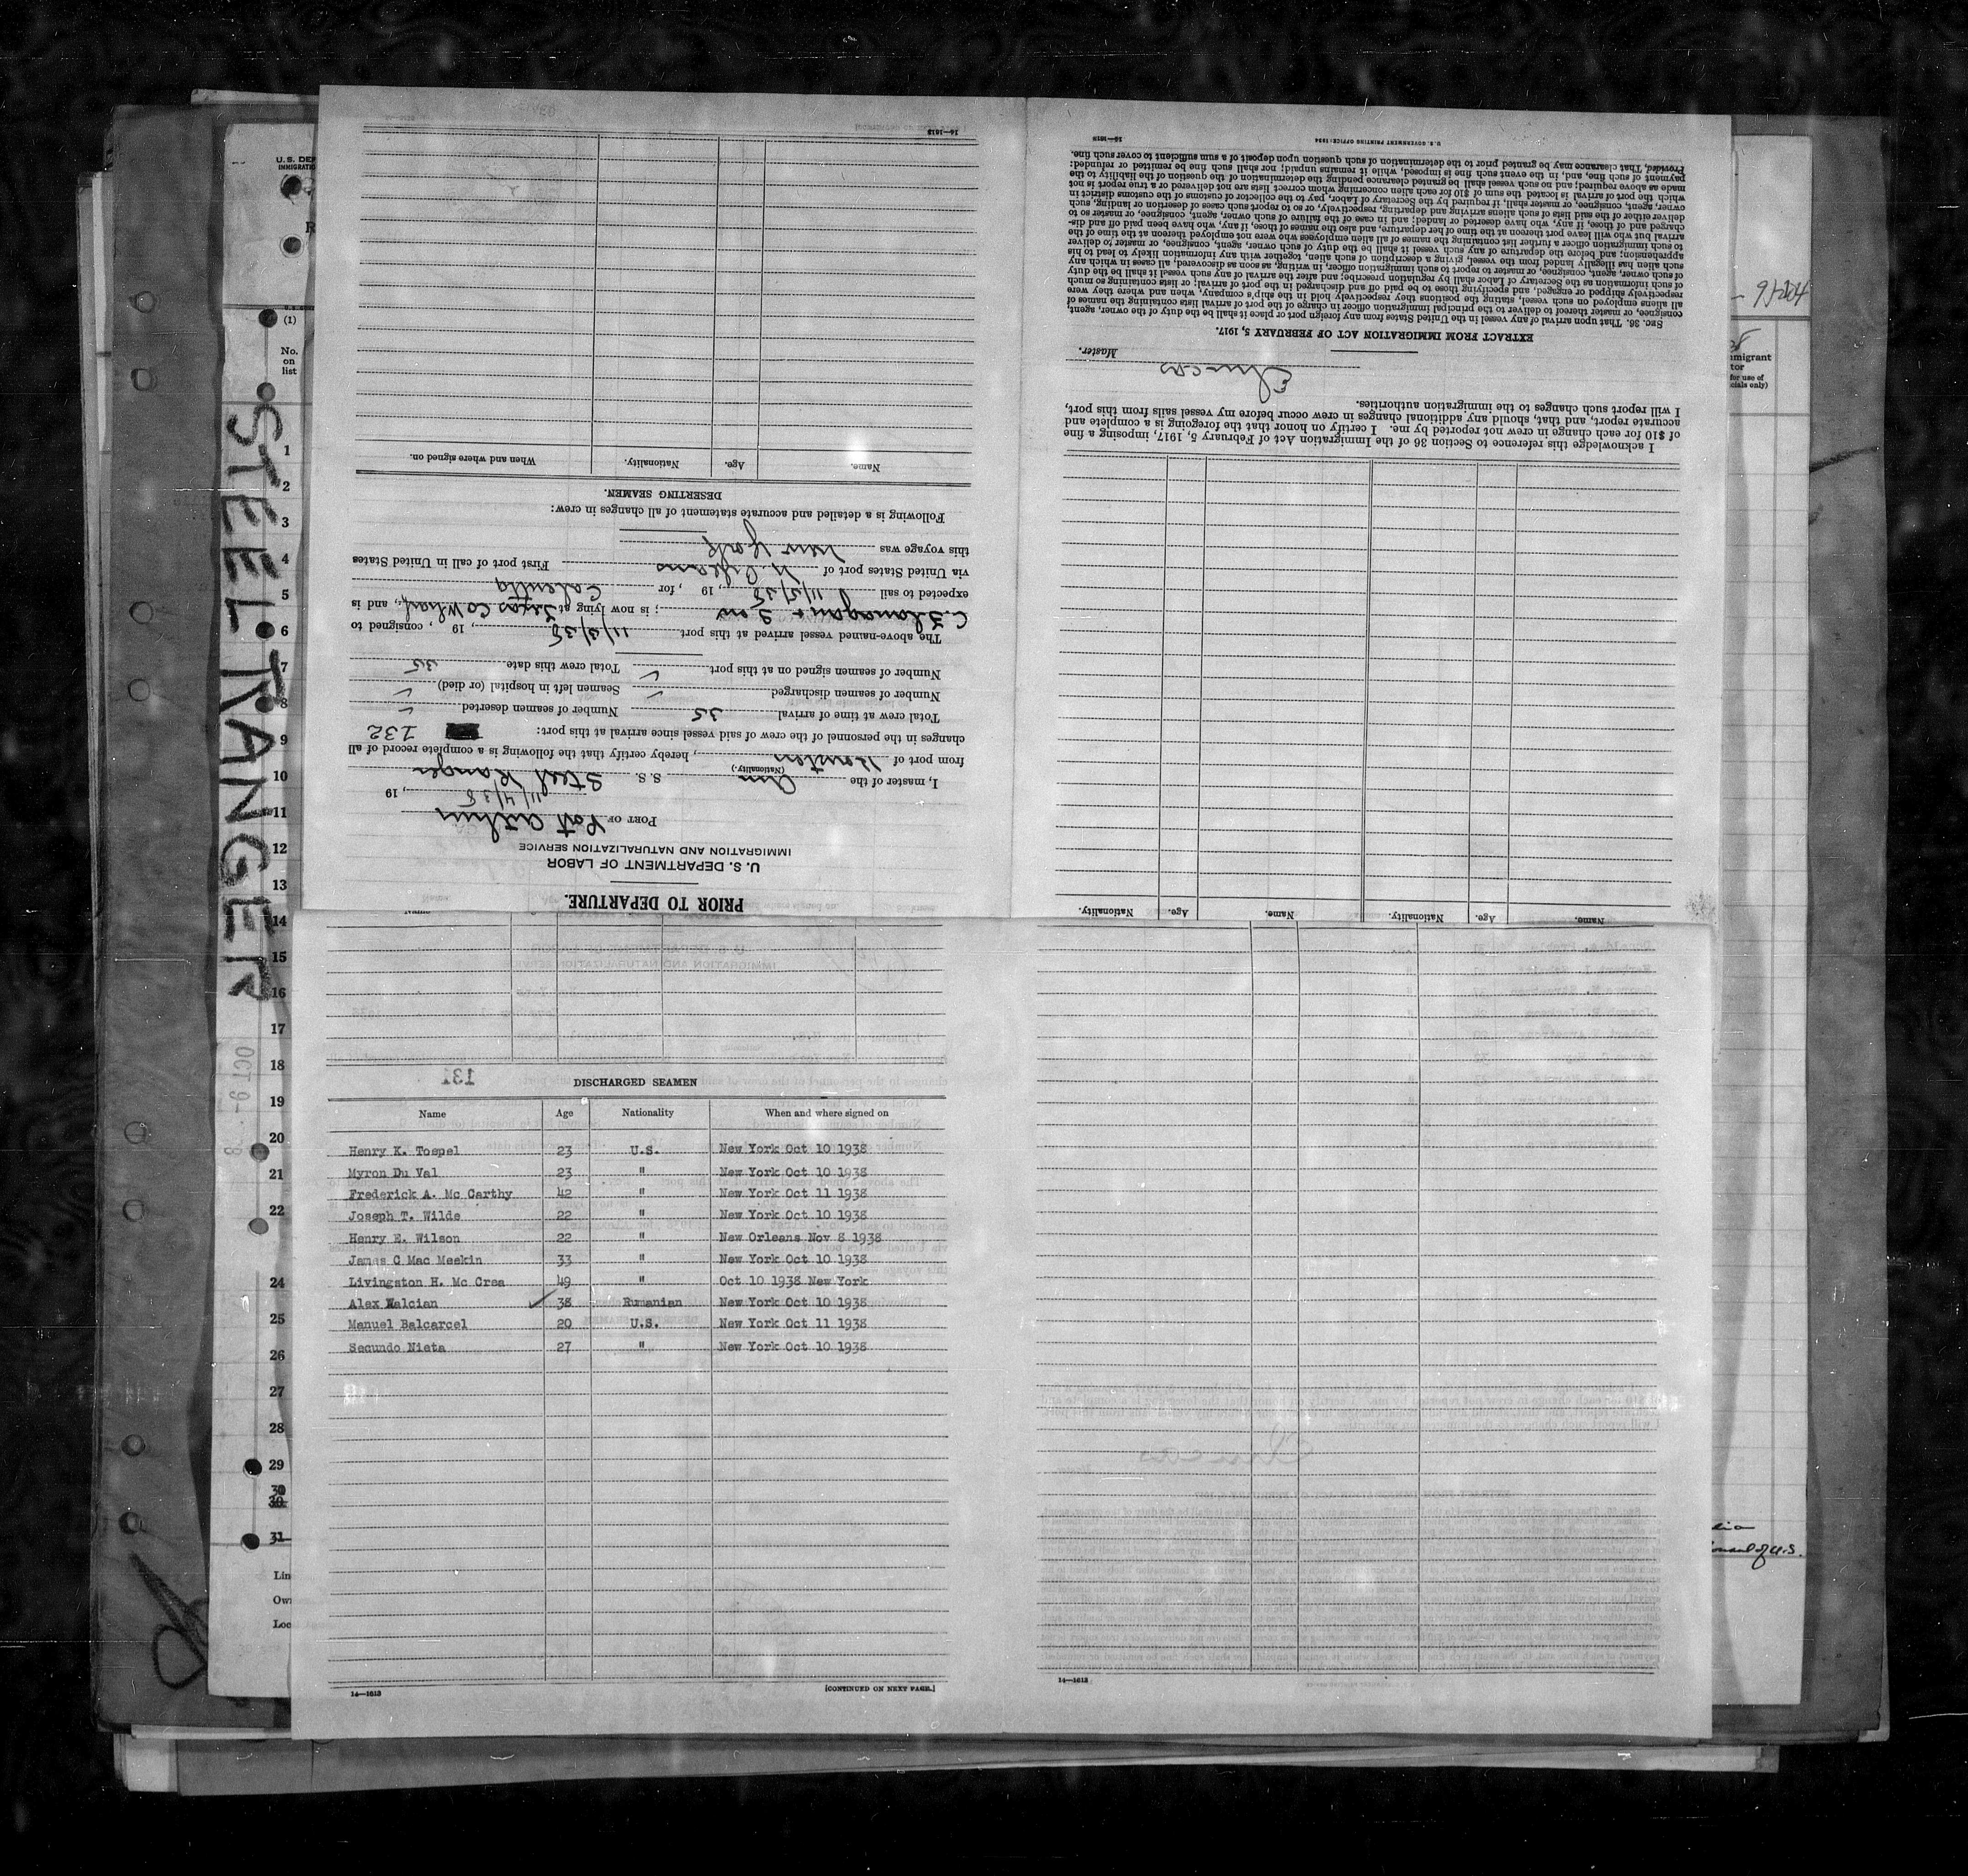 U.S. DEP
IMMIGRATIO
R
(1)
No.
on
list
1
2
3
4
5
6
7
8
9
10
11
12
13
14
15
16
17
18
19
20
21
22
24
25
26
27
28
29
30
31
Lin
Own
Loc
STEEL RANGER
8 - -6100
PRIOR TO DEPARTURE.
U. S. DEPARTMENT OF LABOR
IMMIGRATION AND NATURALIZATION SERVICE
PORT OF Port Arthur
11/4/38, 19
I, master of the Am S. S. Steel Ranger
(Nationality.)
from port of Houston, hereby certify that the following is a complete record of all
changes in the personnel of the crew of said vessel since arrival at this port: 132
Total crew at time of arrival 35 Number of seamen deserted ✓
Number of seamen discharged ✓ Seamen left in hospital (or died) ✓
Number of seamen signed on at this port ✓ Total crew this date 35
The above-named vessel arrived at this port 11/3/38, 19 , consigned to
C. Flanagan & Son; is now lying at Texas Co Wharf, and is
expected to sail 11/5/38, 19 , for Calcutta
via United States port of N. Orleans First port of call in United States
this voyage was New York
Following is a detailed and accurate statement of all changes in crew:
DESERTING SEAMEN.
Name. Age. Nationality. When and where signed on.
16—1613
[CONTINUED ON NEXT PAGE.]
Name. Age. Nationality. Name. Age. Nationality.
I acknowledge this reference to Section 36 of the Immigration Act of February 5, 1917, imposing a fine
of $10 for each change in crew not reported by me. I certify on honor that the foregoing is a complete and
accurate report, and that, should any additional changes in crew occur before my vessel sails from this port,
I will report such changes to the immigration authorities.
Master.
EXTRACT FROM IMMIGRATION ACT OF FEBRUARY 5, 1917.
SEC. 36. That upon arrival of any vessel in the United States from any foreign port or place it shall be the duty of the owner, agent,
consignee, or master thereof to deliver to the principal immigration officer in charge of the port of arrival lists containing the names of
all aliens employed on such vessel, stating the positions they respectively hold in the ship's company, when and where they were
respectively shipped or engaged, and specifying those to be paid off and discharged in the port of arrival; or lists containing so much
of such information as the Secretary of Labor shall by regulation prescribe; and after the arrival of any such vessel it shall be the duty
of such owner, agent, consignee, or master to report to such immigration officer, in writing, as soon as discovered, all cases in which any
such alien has illegally landed from the vessel, giving a description of such alien, together with any information likely to lead to his
apprehension; and before the departure of any such vessel it shall be the duty of such owner, agent, consignee, or master to deliver
to such immigration officer a further list containing the names of all alien employees who were not employed thereon at the time of the
arrival but who will leave port thereon at the time of her departure, and also the names of those, if any, who have been paid off and dis-
charged and of those, if any, who have deserted or landed; and in case of the failure of such owner, agent, consignee, or master so to
deliver either of the said lists of such aliens arriving and departing, respectively, or so to report such cases of desertion or landing, such
owner, agent, consignee, or master, shall, if required by the Secretary of Labor, pay to the collector of customs of the customs district in
which the port of arrival is located the sum of $10 for each alien concerning whom correct lists are not delivered or a true report is not
made as above required; and no such vessel shall be granted clearance pending the determination of the question of the liability to the
payment of such fine, and, in the event such fine is imposed, while it remains unpaid; nor shall such fine be remitted or refunded:
Provided, That clearance may be granted prior to the determination of such question upon deposit of a sum sufficient to cover such fine.
U. S. GOVERNMENT PRINTING OFFICE: 1934
16—1613
131
DISCHARGED SEAMEN
Name Age Nationality When and where signed on
Henry K. Toepel 23 U.S. New York Oct 10 1938
Myron Du Val 23 " New York Oct 10 1938
Frederick A. Mc Carthy 42 " New York Oct 11 1938
Joseph T. Wilde 22 " New York Oct 10 1938
Henry E. Wilson 22 " New Orleans Nov 8 1938
James C Mac Meekin 33 " New York Oct 10 1938
Livingston H. Mc Crea 49 " Oct 10 1938 New York
Alex Nalcian ✓ 38 Rumanian New York Oct 10 1938
Manuel Balcarcel 20 U.S. New York Oct 11 1938
Secundo Nieta 27 " New York Oct 10 1938
14—1613
[CONTINUED ON NEXT PAGE.]
14—1613
mmigrant
tor
for use of
cials only)
of U.S.